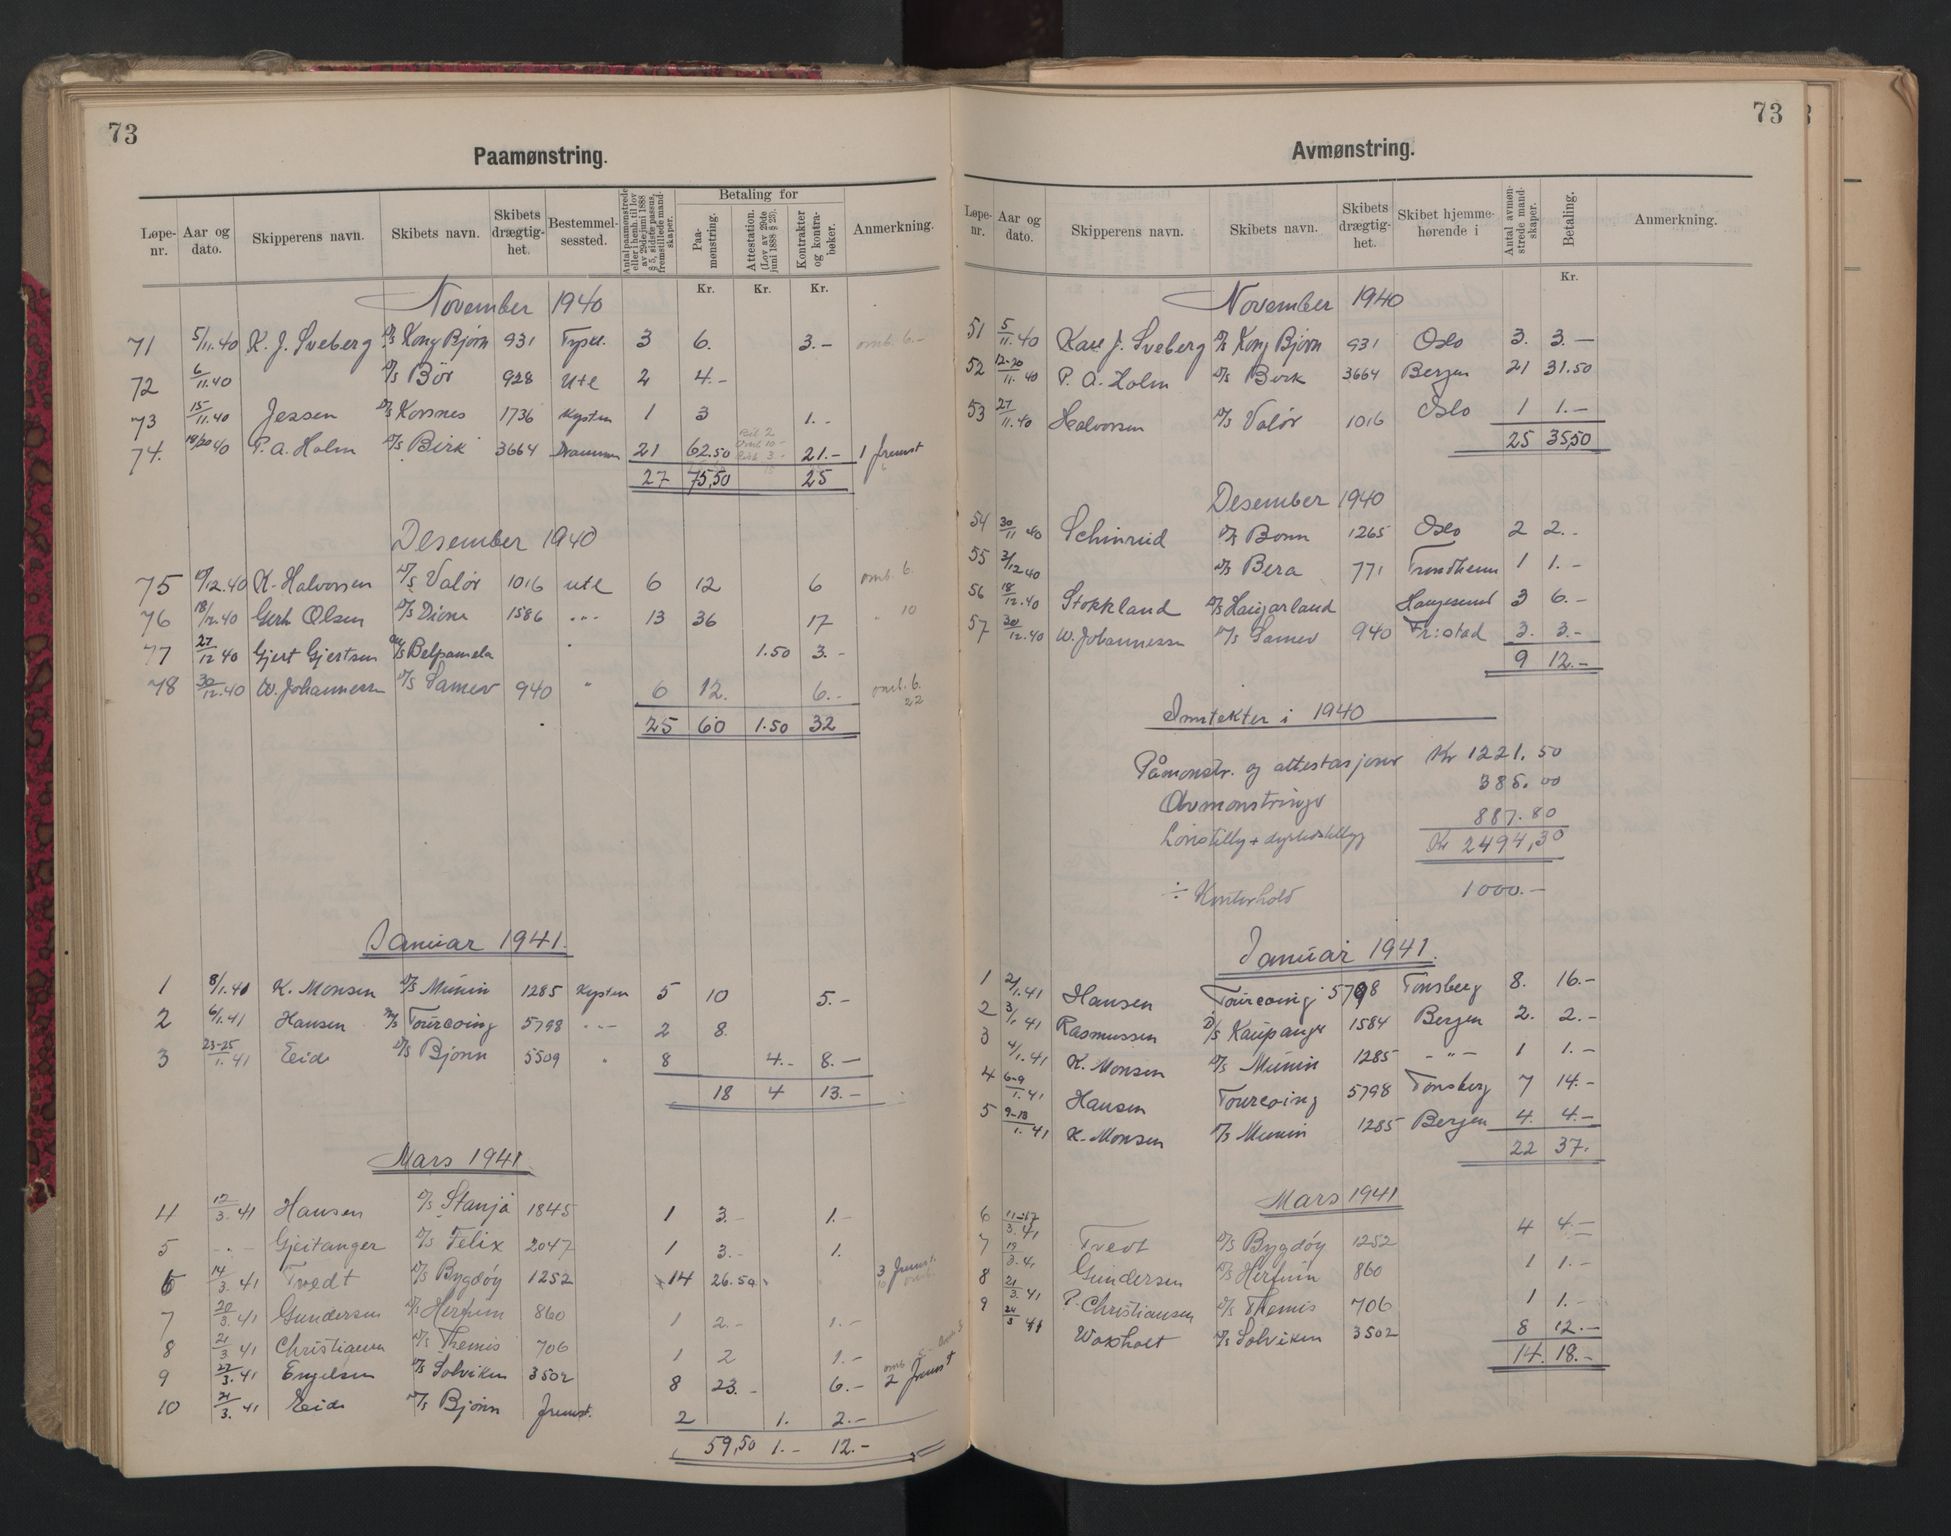 73
Paamønstring.
Løpe-nr. Aar og dato. Skipperens navn. Skibets navn. Skibets drægtig-het. Bestemmel-sessted. Antal paamønstrede eller i henh. til lov av 29de juni 1888 § 5, sidste passus, fremstillede mand-skaper. Betaling for Paa-mønstring. Attestation. (Lov av 29de juni 1888 § 23). Kontrakter og kontra-bøker. Anmerkning.
Kr. Kr. Kr.
November 1940
71 5/11.40 K. J. Sveberg D/S Kong Bjørn 931 Tyskl. 3 6. 3.- omb. 6.-
72 6/11.40 D/S Bør 928 Ute 2 4.-
73 15/11.40 Jessen D/S Korsnes 1736 Kysten 1 3 1.-
74. 40 P. A. Holm D/S Birk 3664 Drammen 21 62.50 21.- 1 fremst
27 75,50 25
Desember 1940
75 /12.40 K. Halvorsen D/S Valør 1016 ute 6 12 6 omb. 6.
76 18/12.40 Gerh Olsen D/S Dione 1586 -"- 13 36 17 " 10
77 27/12 40 Gjert Gjertsen M/S Belpamela " 1.50 3.-
78 30/12.40 W. Johannessen D/S Samev 940 " 6 12. 6.- omb. 6.
22
25 60 1.50 32
Januar 1941.
1 8/1.41 K. Monsen D/S Munin 1285 Kysten 5 10 5.-
2 6/1.41 Hansen M/S Tourcoing 5798 -"- 2 8.
3 23-25/1.41 Eide D/S Bjønn 5509 " 8 4.- 8.-
18 4 13.-
Mars 1941.
4 12/3.41 Hansen D/S Stanja 1845 1 3.- 1.-
5 -"- Gjeitanger D/S Felix 2047 1 3.- 1.
6 14/3.41 Tvedt D/S Bygdøy 1252 14 26.50 3 fremst.
10 omb.
7 20/3.41 Gundersen D/S Herfinn 860 1 2.- 1.-
8 21/3 41 Christiansen D/S Themis 706 1 2 1.-
9 22/3.41 Engelsen D/S Solviken 3502 8 23.- 6.- 2 fremst
10 21/3. 41 Eide D/S Bjønn fremst. 2 1. 2.-
59,50 1.- 12.-
73
Avmønstring.
Løpe-nr. Aar og dato. Skipperens navn. Skibets navn. Skibets drægtig-het. Skibet hjemme-hørende i Antal avmøn-strede mand-skaper. Betaling. Anmerkning.
Kr.
November 1940
51 5/11.40 Kåre J. Sveberg D/S Kong Bjørn 931 Oslo 3. 3.-
52 12-20/11.40 P. A. Holm D/S Birk 3664 Bergen 21 31.50
53 27/11.40 Halvorsen D/S Valør 1016 Oslo 1 1.-
25 35,50
Desember 1940
54 30/11 40 Schinrud D/S Bonn 1265 Oslo 2 2.-
55 3/12 40 D/S Bera 771 Trondheim 1 1.-
56 18/12.40 Stokkland D/S Haugarland Haugesund 3 6.-
57 30/12.40 W. Johannessen D/S Samev 940 Fr:stad 3. 3.-
9 12.-
Inntekter i 1940
Påmønstr. og attestasjoner Kr 1221.50
Avmønstringer 385.00
Lønstillg + dyrtidstillegg 887.80
Kr 2494,30
÷ Kontorhold 1000.-
Januar 1941.
1 2/1.41 Hansen Tourcoing 5798 Tønsberg 8. 16.-
2 3/1 41 Rasmussen D/S Kaupanger 1584 Bergen 2. 2.-
3 4/1.41 K. Monsen D/S Munin 1285 -"- 1 1.-
4 6-9/1.41 Hansen Tourcoing 5798 Tønsberg 7 14.-
5 9-13/1.41 K. Monsen D/S Munin 1285 Bergen 4. 4.-
22 37.-
Mars 1941
6 11-17/3.41 Tvedt D/S Bygdøy 1252 4 4.-
7 19/3.41 Gundersen D/S Herfinn 860 1 1.-
8 21/3.41 P. Christiansen D/S Themis 706 1 1.-
9 24/3 41 Woxholt D/S Solviken 3502 8 12.-
14. 18.-